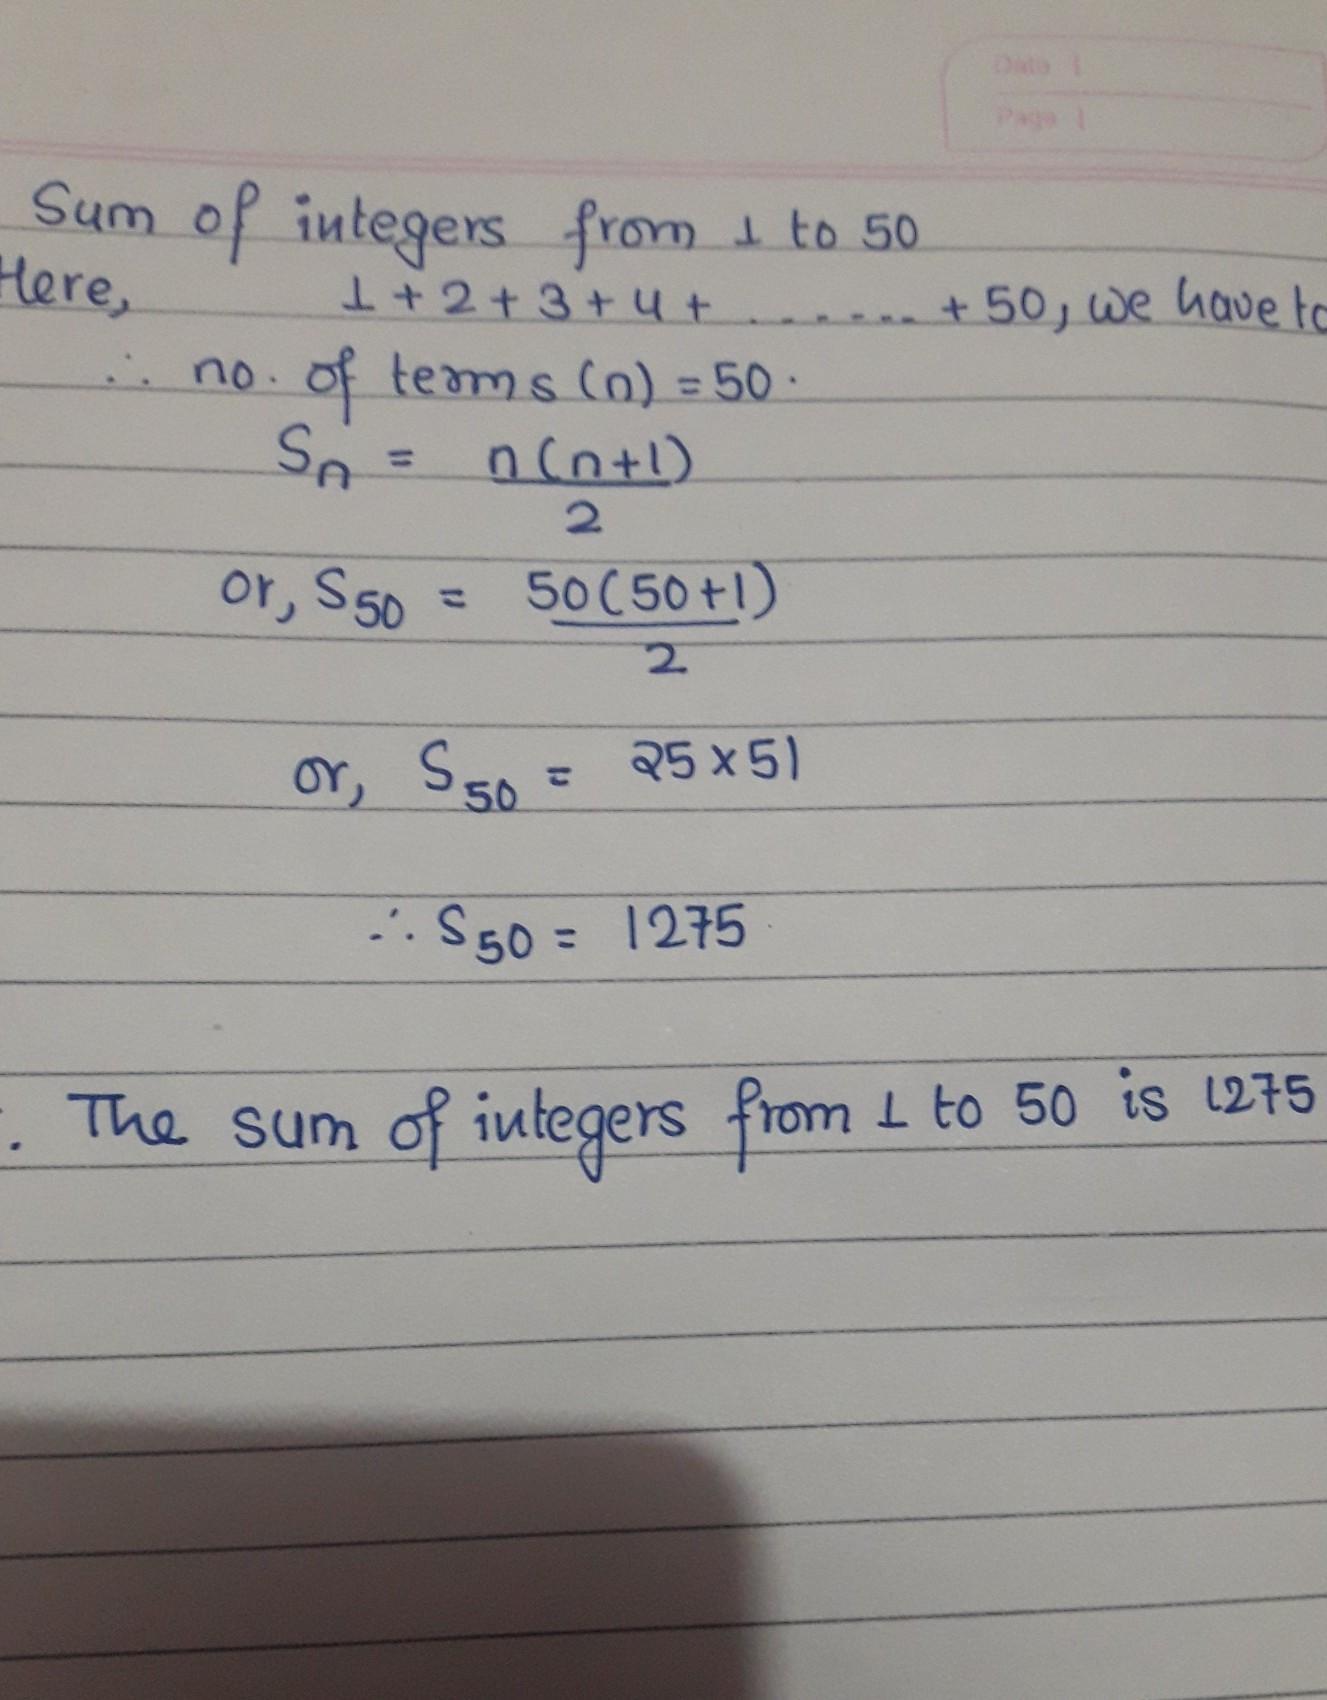 Date
Page
Sum of integers from 1 to 50
Here, 1 + 2 + 3 + 4 + ....... + 50, we have to
∴ no. of terms (n) = 50.
Sn = n(n+1)
2
or, S50 = 50(50+1)
2
or, S50 = 25 × 51
∴ S50 = 1275
. The sum of integers from 1 to 50 is 1275